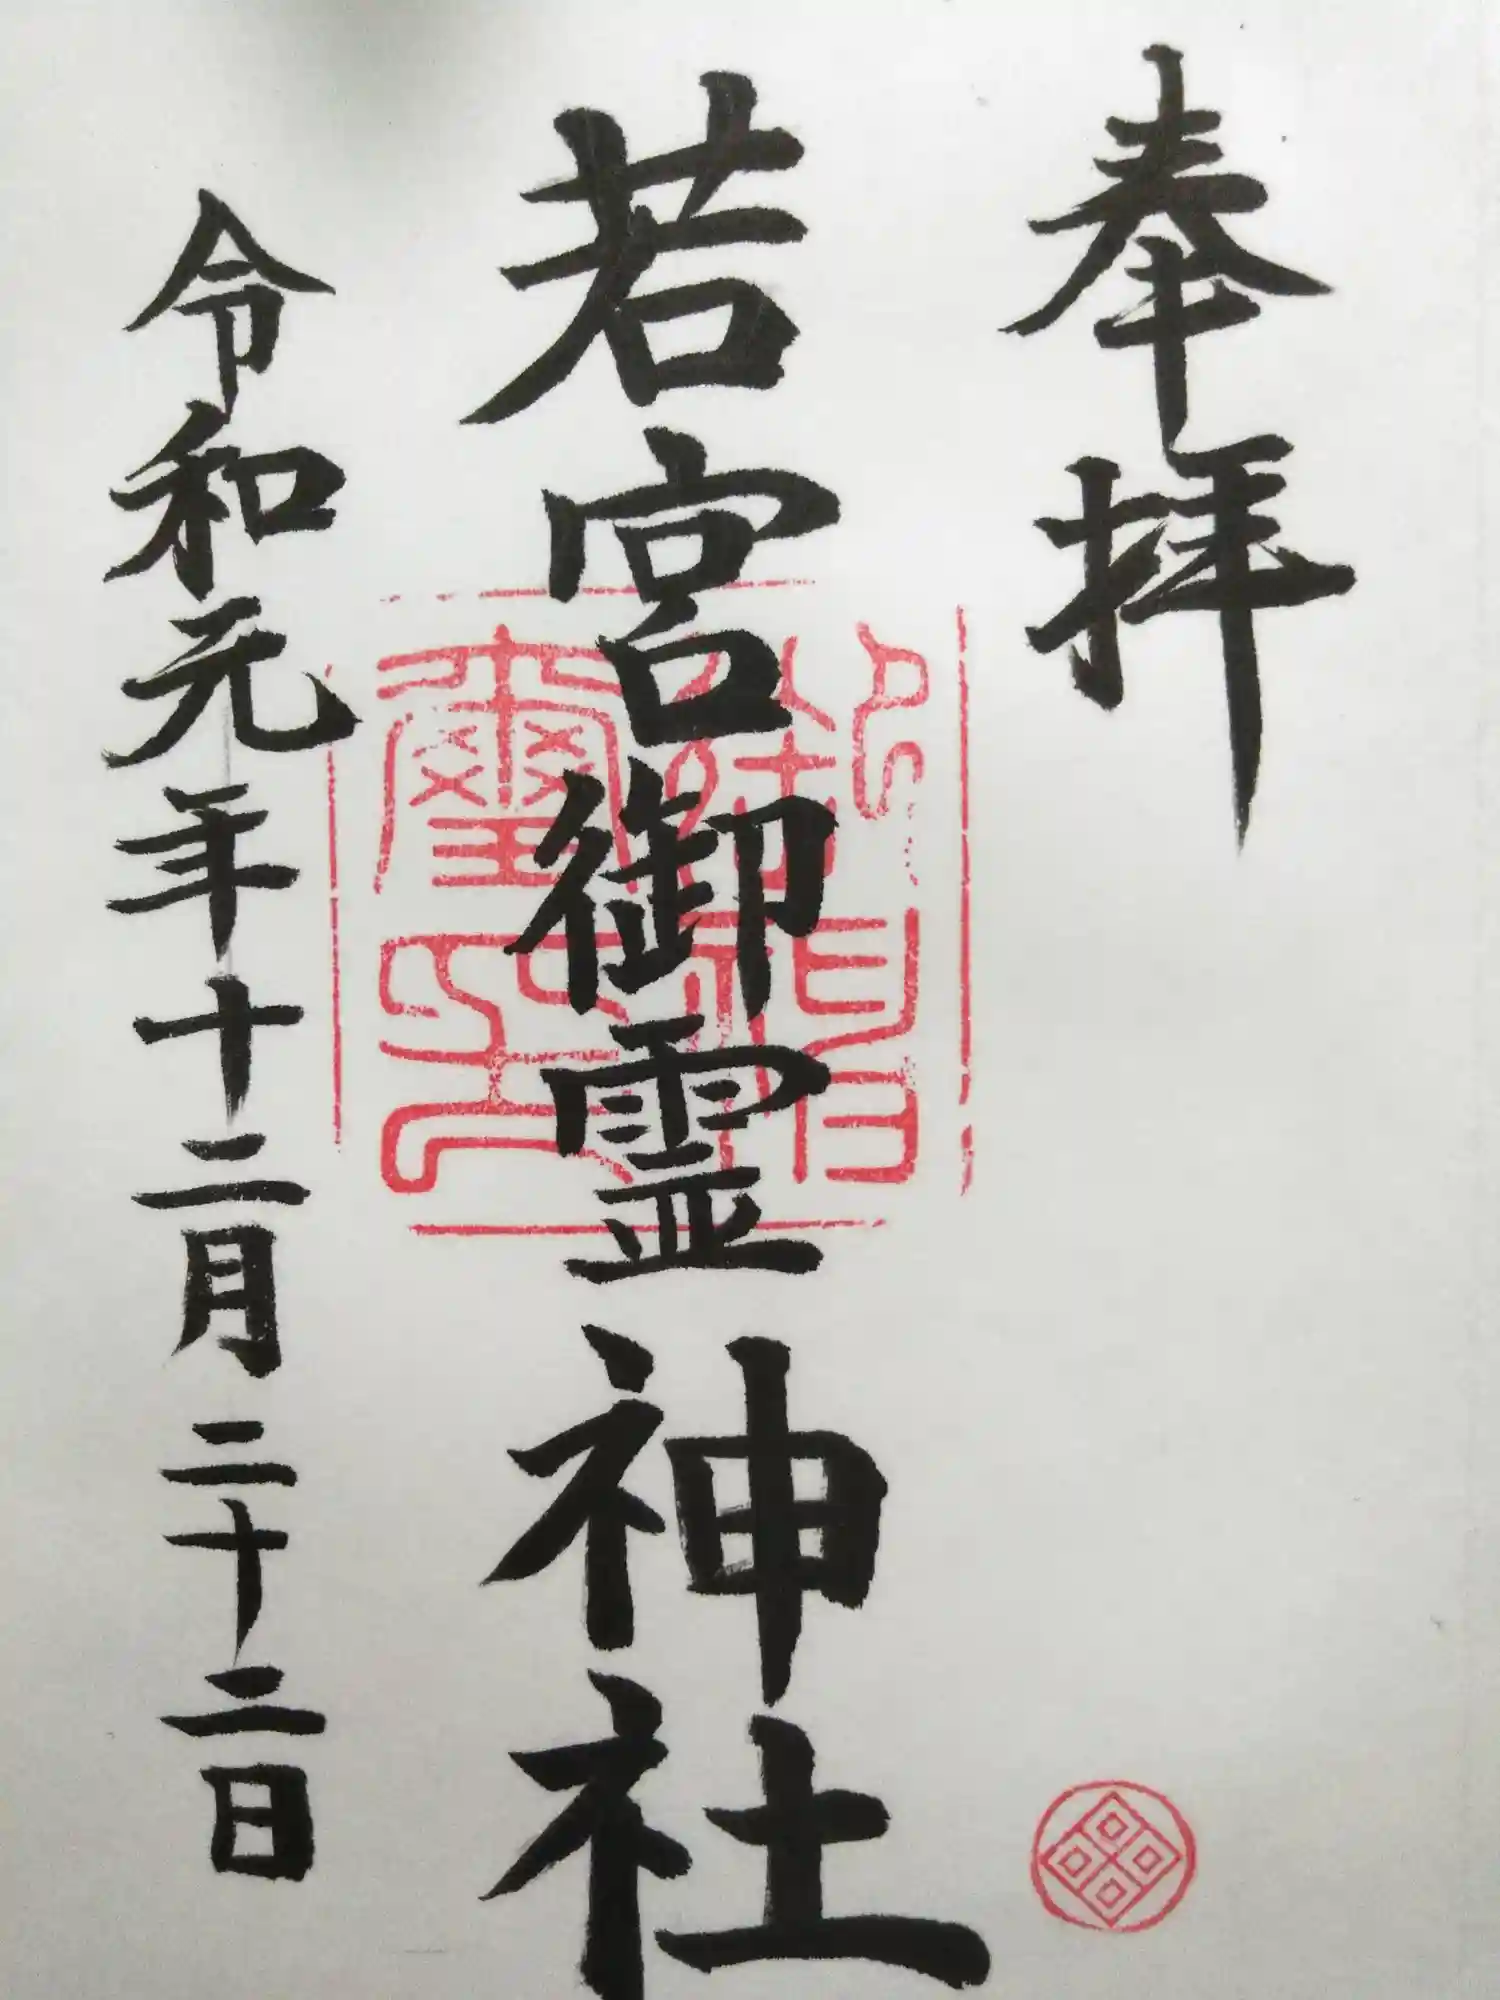 奉拝
若宮御霊神社
令和元年十二月二十二日